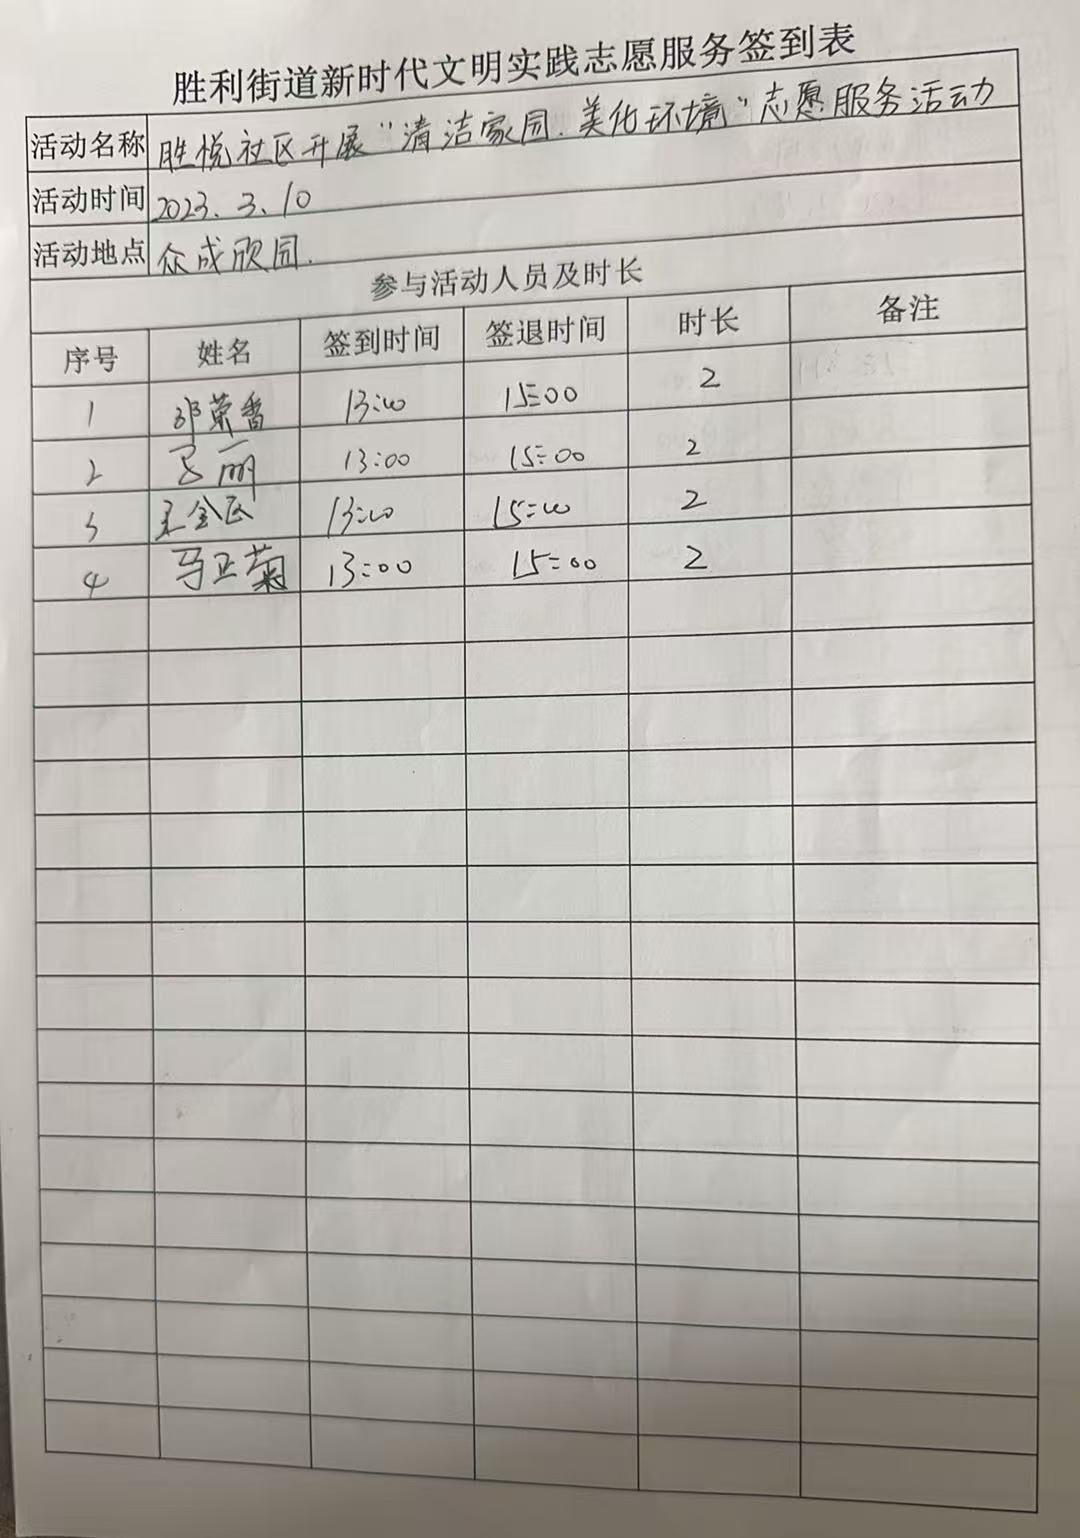 胜利街道新时代文明实践志愿服务签到表
活动名称 胜悦社区开展“清洁家园.美化环境”志愿服务活动
活动时间 2023.3.10
活动地点 众成欣园.
参与活动人员及时长
序号 姓名 签到时间 签退时间 时长 备注
1 邓荣香 13:00 15:00 2
2 丽 13:00 15:00 2
3 王金 13:00 15:00 2
4 马正菊 13:00 15:00 2